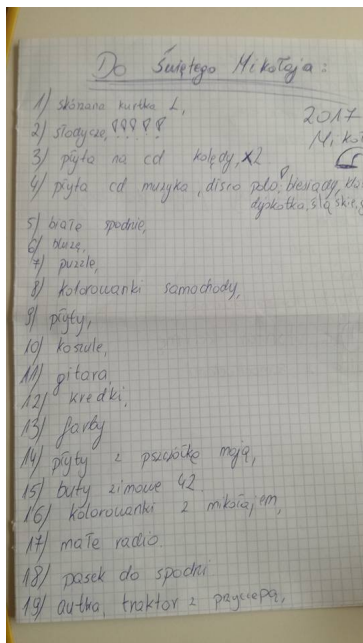 Do Świętego Mikołaja:
2017
1) skórzana kurtka L,
2) słodycze, !!!!!
3) płyta na cd kolędy, x2
4) płyta cd muzyka, disco polo, biesiady,
dyskotka, śląskie,
5) białe spodnie,
6) bluzę,
7) puzzle,
8) kolorowanki samochody,
9) płyty,
10) koszule,
11) gitara,
12) kredki,
13) farby
14) płyty z pszczółkę mają,
15) buty zimowe 42.
16) kolorowanki z mikołajem,
17) małe radio.
18) pasek do spodni
19) autka, traktor z przyczepą,